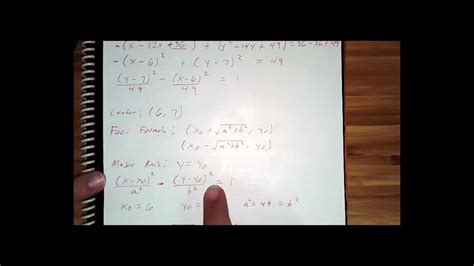 -(x²-12x+36) + (y²-14y+49) = 36-36+49
-(x-6)² + (y-7)² = 49
(y-7)²/49 - (x-6)²/49 = 1
Center: (6,7)
Foci Formula: (x₀+√a²+b², y₀)
(x₀-√a²+b², y₀)
Major Axis: y=y₀
(x-x₀)²/a² - (y-y₀)²/b² = 1
x₀=6 y₀= a²=49=b²